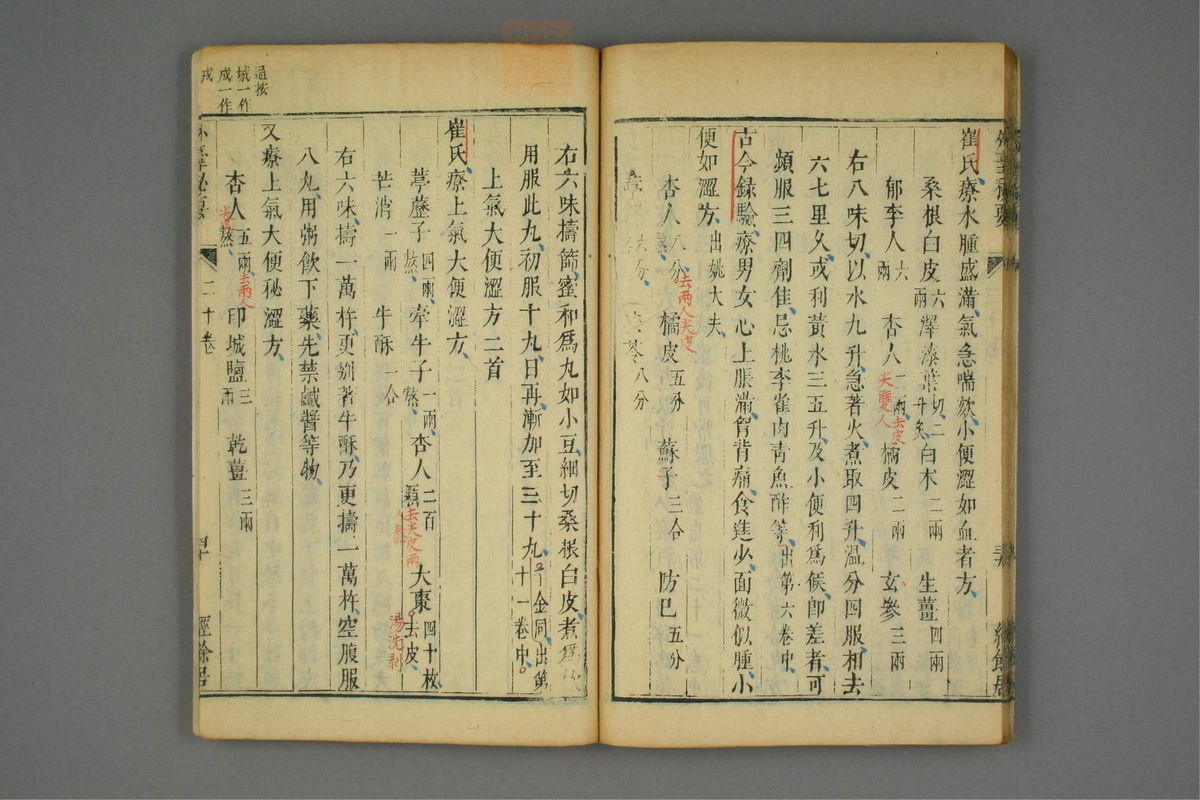 崔氏療水腫盛滿氣急喘欬小便澀如血者方
桑根白皮六兩 澤漆葉切二升炙 白木二兩 生薑四兩
郁李人六兩 杏人二兩去皮尖雙人 橘皮二兩 玄參三兩
右八味切以水九升急著火煮取四升溫分四服相去
六七里久或利黃水三五升及小便利爲候卽差者可
頻服三四劑佳忌桃李雀肉靑魚酢等出第六卷中
古今錄驗療男女心上脹滿胷背痛食進少面微似腫小
便如澀方出姚大夫
杏人八分去兩人尖皮 橘皮五分 蘇子三合 防巳五分
六分 苓八分
右六味擣篩蜜和爲丸如小豆細切桑根白皮煮爲飲
用服此丸初服十九日再漸加至三十九千金同出第十一卷中
上氣大便澀方二首
崔氏療上氣大便澀方
葶藶子四兩熬 牽牛子一兩熬 杏人二百顆去尖皮兩人熬 大棗四十枚去皮湯洗剥
芒消一兩 牛酥一合
右六味擣一萬杵更別著牛酥乃更擣二萬杵空腹服
八丸用粥飮下藥先禁鹹醬等物
又療上氣大便秘澀方
杏人五兩去兩人尖熬 印城鹽三兩 乾薑三兩
二十卷
四十
經餘居
通按
城一作
成一作
戎